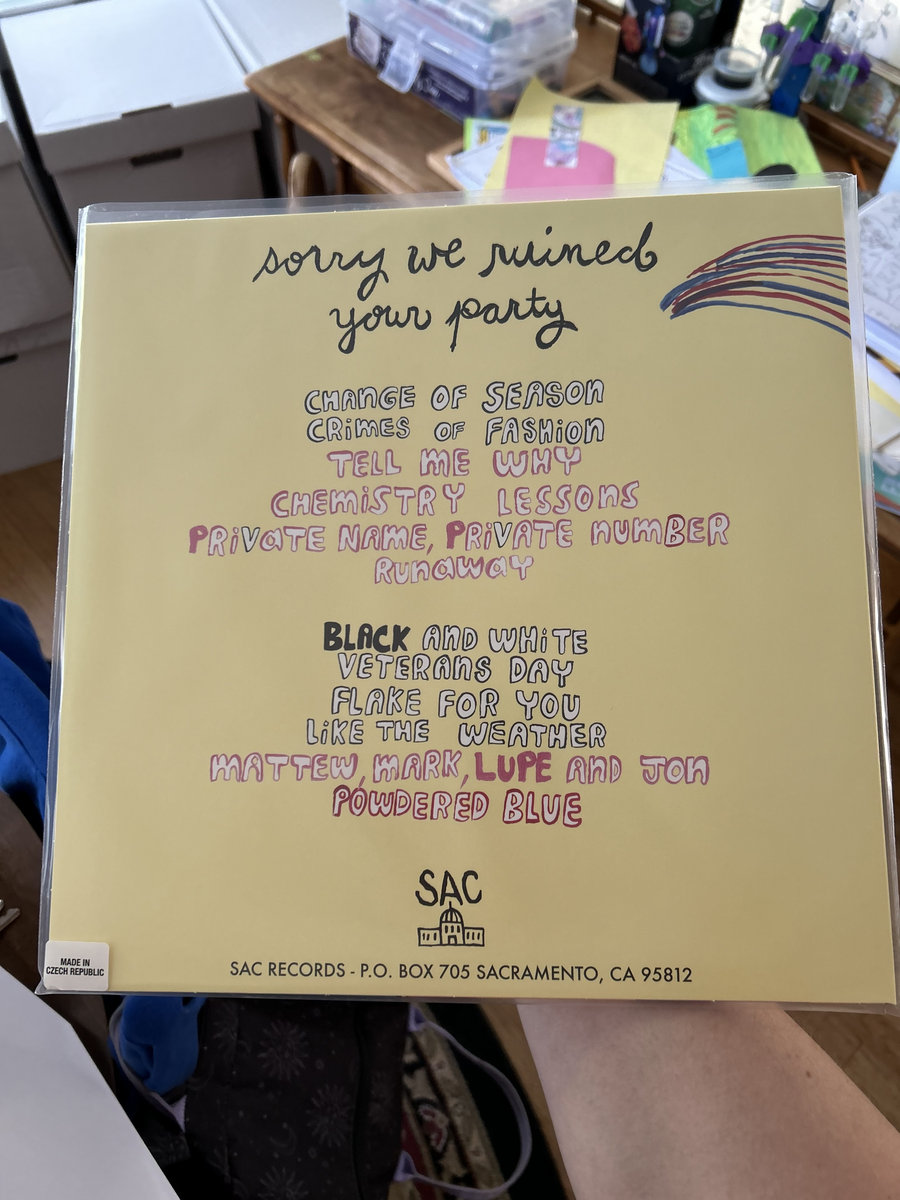 sorry we ruined
your party
CHANGE OF SEASON
CRiMES OF FASHiON
TELL ME WHY
CHEMiSTRY LESSONS
PRiVATE NAME, PRiVATE NUMBER
RUNAWAY
BLACK AND WHiTE
VETERANS DAY
FLAKE FOR YOU
LiKE THE WEATHER
MATTEW, MARK, LUPE AND JON
POWDERED BLUE
SAC
SAC RECORDS - P.O. BOX 705 SACRAMENTO, CA 95812
MADE IN
CZECH REPUBLIC